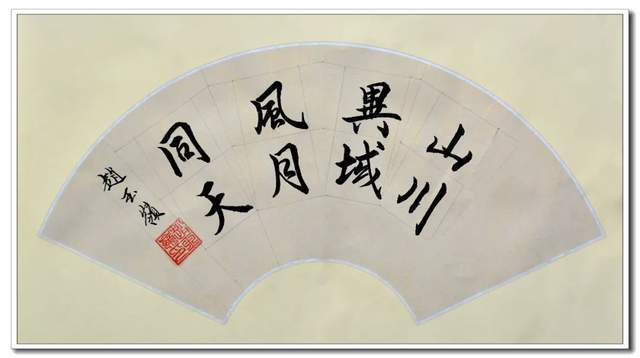 山川
異域
風月
同天
趙玉嶺